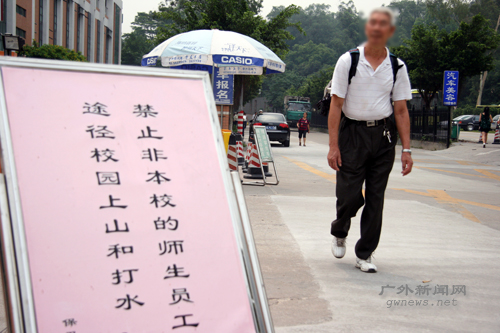 禁止非本校的师生员工
途径校园上山和打水
保
CASIO
报名
汽车美容
广外新闻网
gwnews.net